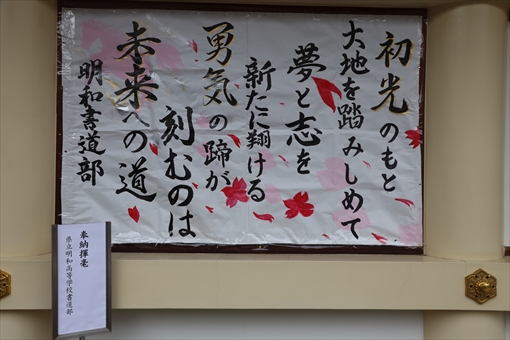 初光のもと
大地を踏みしめて
夢と志を
新たに翔ける
勇気の蹄が
刻むのは
未来への道
明和書道部
奉納揮毫
県立明和高等学校書道部